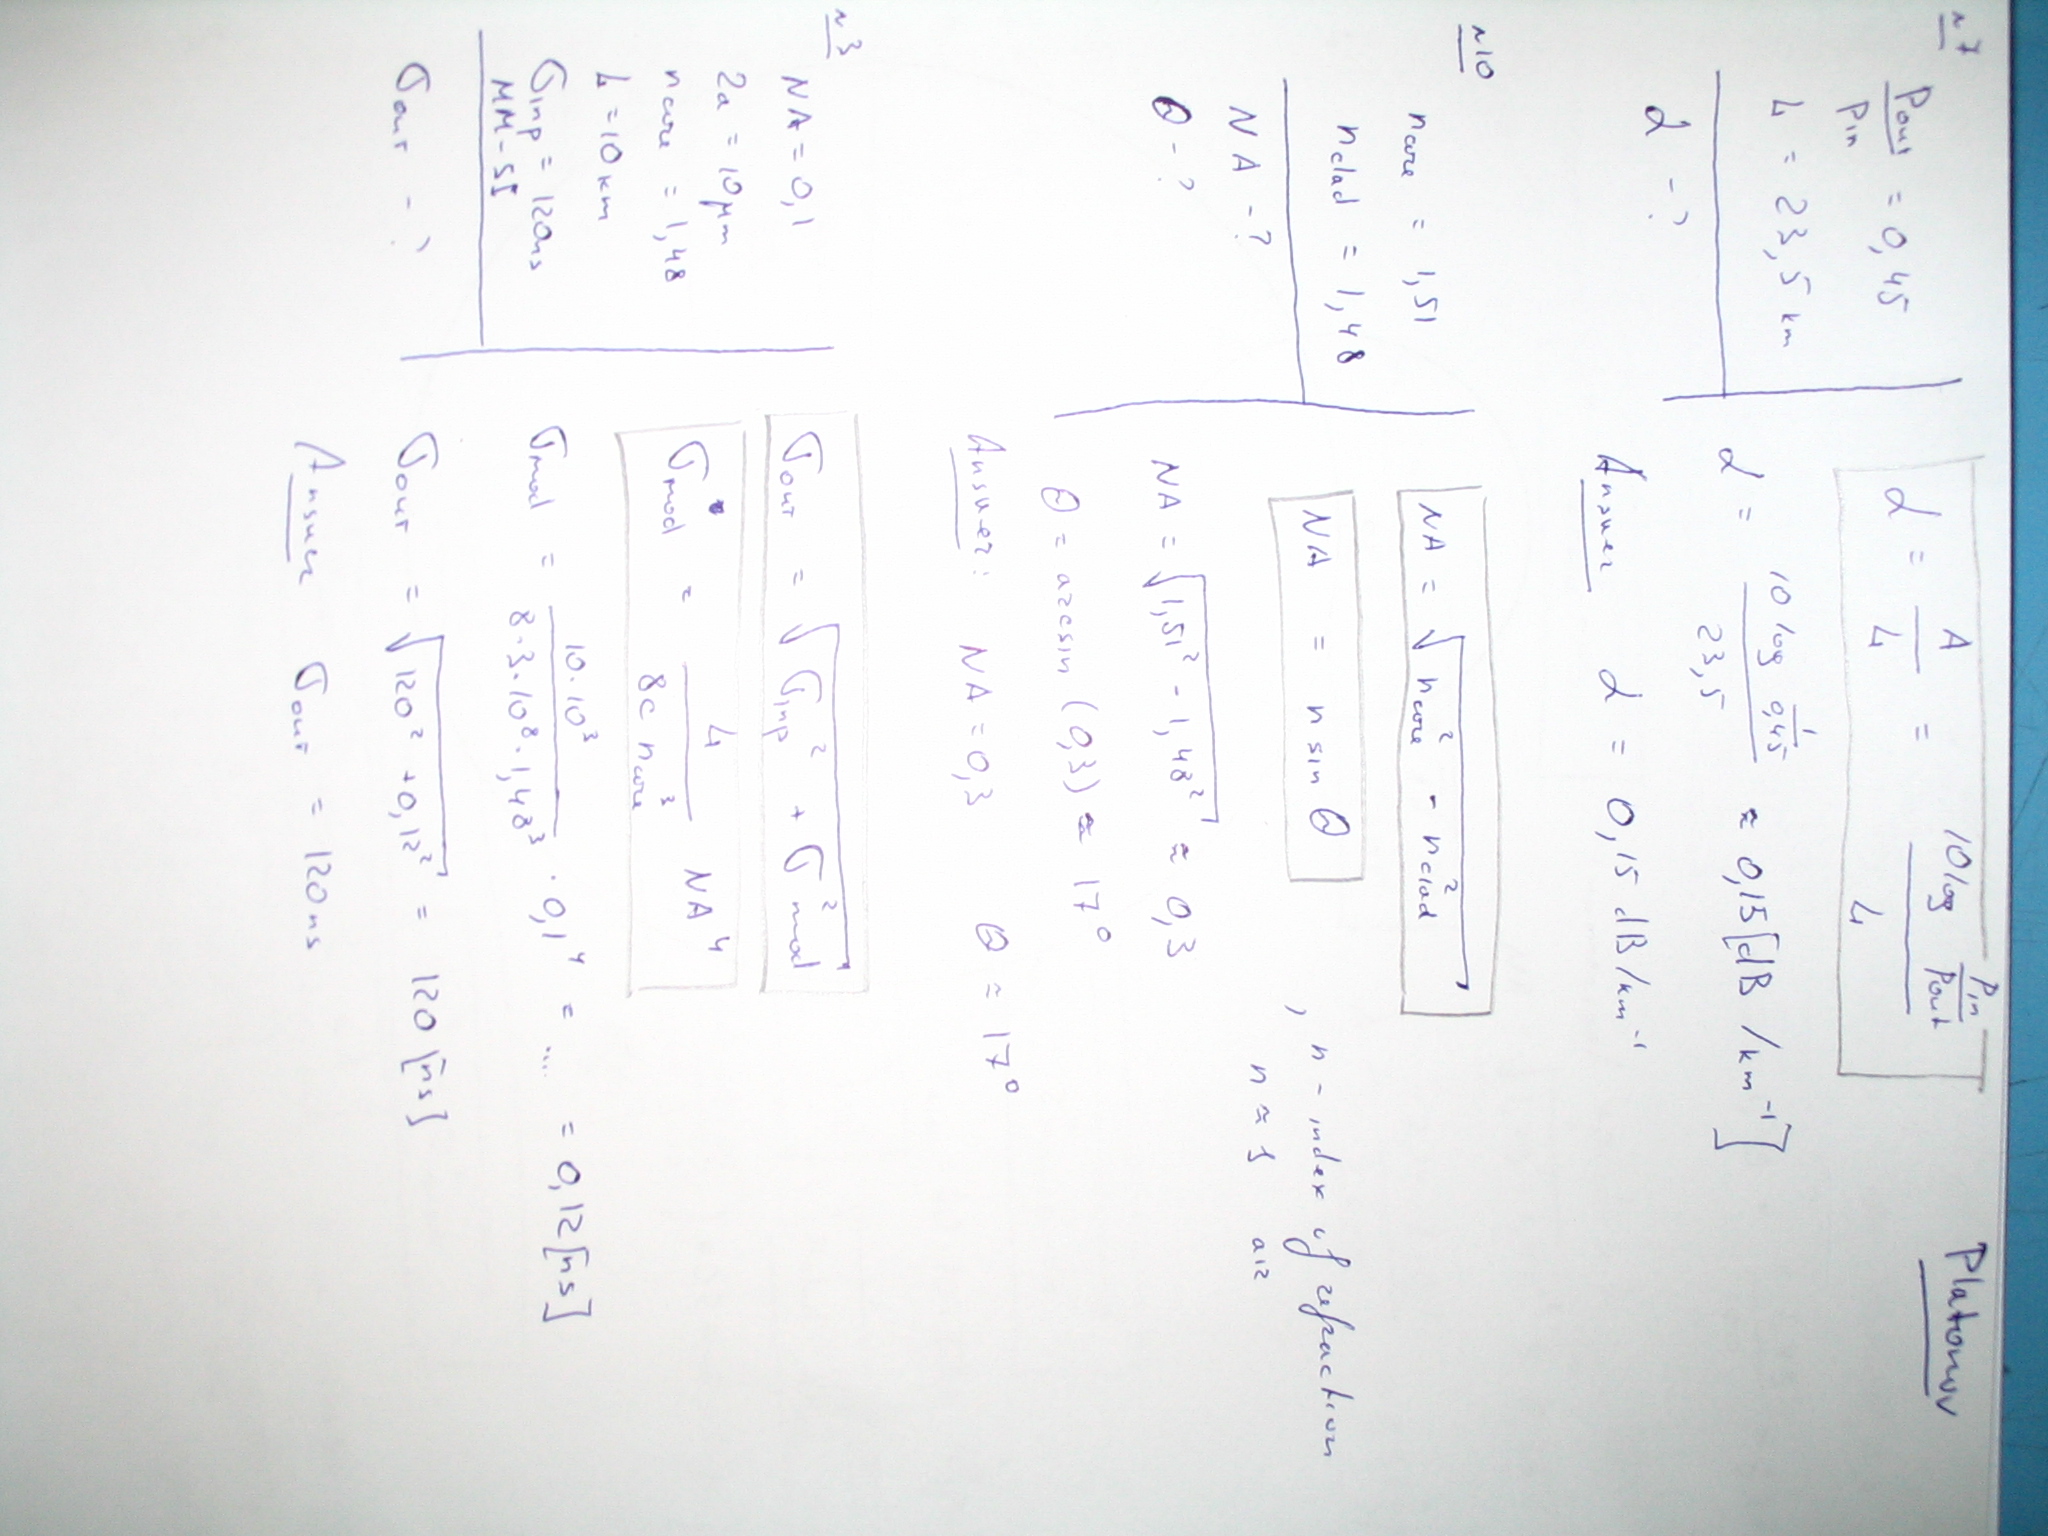 Platonov
№7
Pout/Pin = 0,45
L = 23,5 km
α - ?
α = A/L = 10 log Pin/Pout / L
α = 10 log 1/0,45 / 23,5 ≈ 0,15 [dB/km⁻¹]
Answer α = 0,15 dB/km⁻¹
№10
ncore = 1,51
nclad = 1,48
NA - ?
Θ - ?
NA = √(ncore² - nclad²)
NA = n sin Θ , n - index of refraction
n ≈ 1 air
NA = √(1,51² - 1,48²) ≈ 0,3
Θ = arcsin (0,3) ≈ 17°
Answer: NA = 0,3 Θ ≈ 17°
№3
NA = 0,1
2a = 10 μm
ncore = 1,48
L = 10 km
σinp = 120ns
MM - SI
σout - ?
σout = √(σinp² + σ²mod)
σmod = L / 8c ncore³ NA⁴
σmod = 10·10³ / 8·3·10⁸·1,48³ · 0,1⁴ = ... = 0,12 [ns]
σout = √(120² + 0,12²) = 120 [ns]
Answer σout = 120 ns